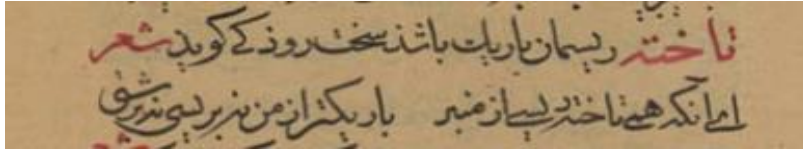 تاخته ریسمان باریك باشد سخت روذکے کوید شعر
ای آنکه همی تاخته ریسی از منبر باریکتر از من نذ بریسی نذبر شتی